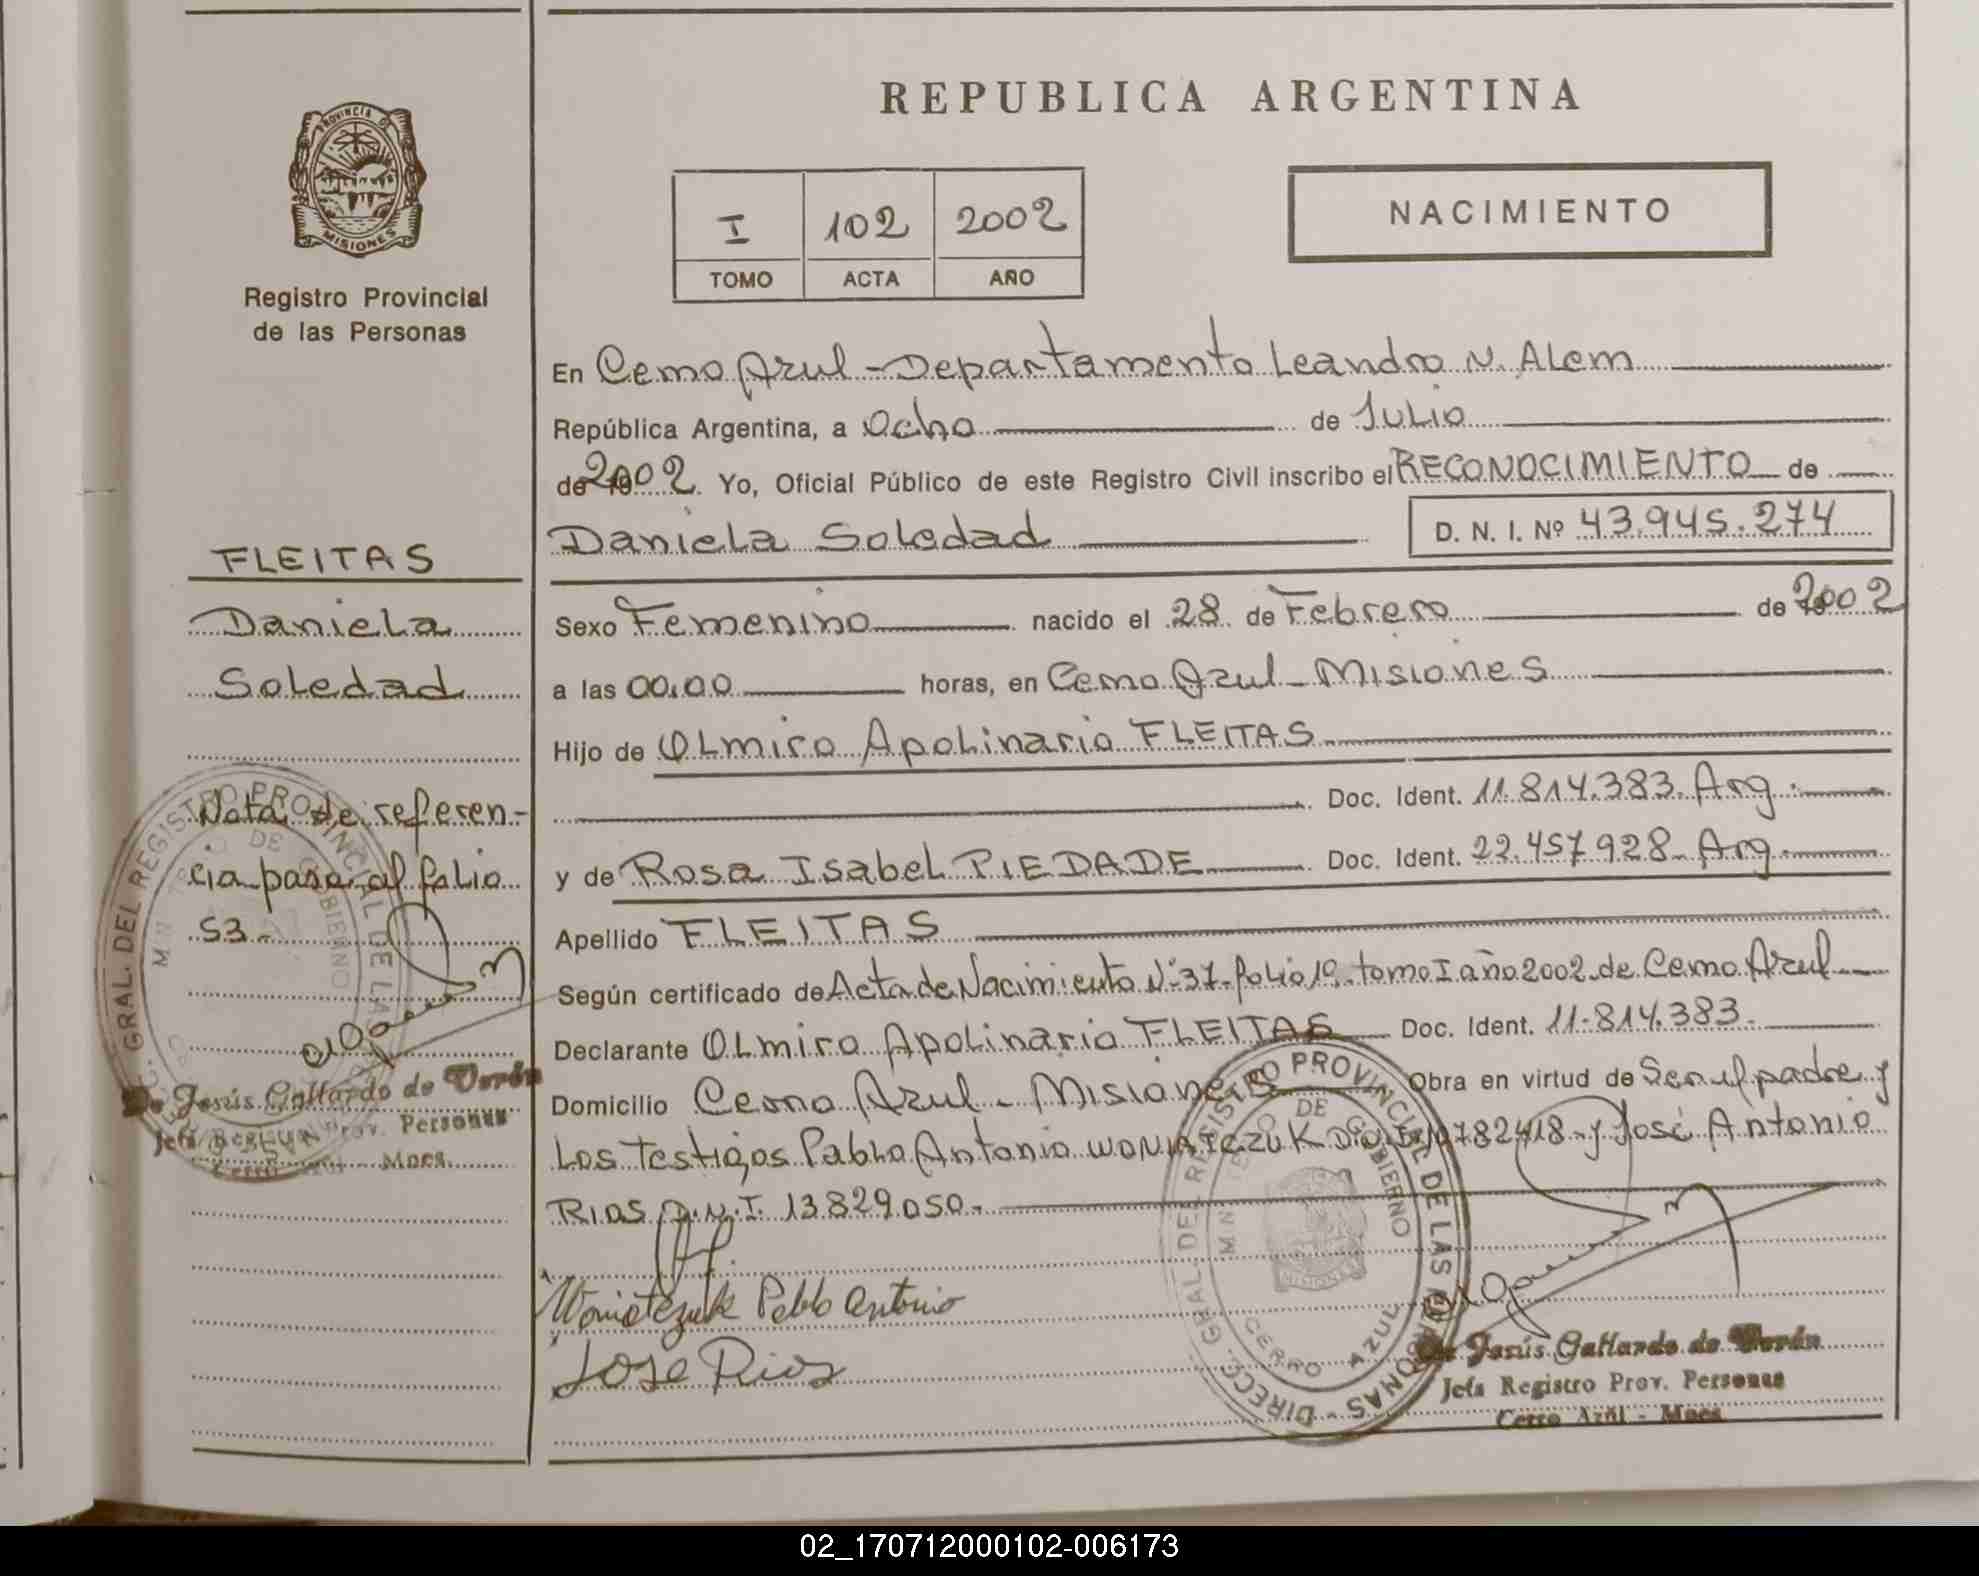 REPUBLICA ARGENTINA
PROVINCIA DE
MISIONES
Registro Provincial
de las Personas
I 102 2002
TOMO ACTA AÑO
NACIMIENTO
En Cerro Azul - Departamento Leandro N. Alem
República Argentina, a Ocho de Julio
de 2002. Yo, Oficial Público de este Registro Civil inscribo el RECONOCIMIENTO de
Daniela Soledad D. N. I. Nº 43.945.274
Sexo Femenino nacido el 28 de Febrero de 2002
a las 00.00 horas, en Cerro Azul - Misiones
Hijo de Olmiro Apolinario FLEITAS
Doc. Ident. 11.814.383. Arg.
y de Rosa Isabel PIEDADE Doc. Ident. 22.457.928. Arg.
Apellido FLEITAS
Según certificado de Acta de Nacimiento Nº 37. folio 19. tomo I año 2002. de Cerro Azul
Declarante Olmiro Apolinario FLEITAS Doc. Ident. 11.814.383.
Domicilio Cerro Azul - Misiones Obra en virtud de Ser el padre y
Los Testigos Pablo Antonio WONIATCZUK y José Antonio
RIOS D.N.I. 13.829.050.
Woniatczuk Pablo Antonio
Jose Rios
DIRECC. GRAL. DEL REGISTRO PROVINCIAL DE LAS PERSONAS
DE GOBIERNO
MISIONES
CERRO AZUL
de Jesús Gallardo de Verón
Jefa Registro Prov. Personas
Cerro Azul - Mnes.
FLEITAS
Daniela
Soledad
Nota de referen-
cia pasa al folio
53.
GRAL. DEL REGISTRO PROVINCIAL DE LAS
DE GOBIERNO
de Jesús Gallardo de Verón
Jefa Registro Prov. Personas
Cerro Azul - Mnes.
02_170712000102-006173